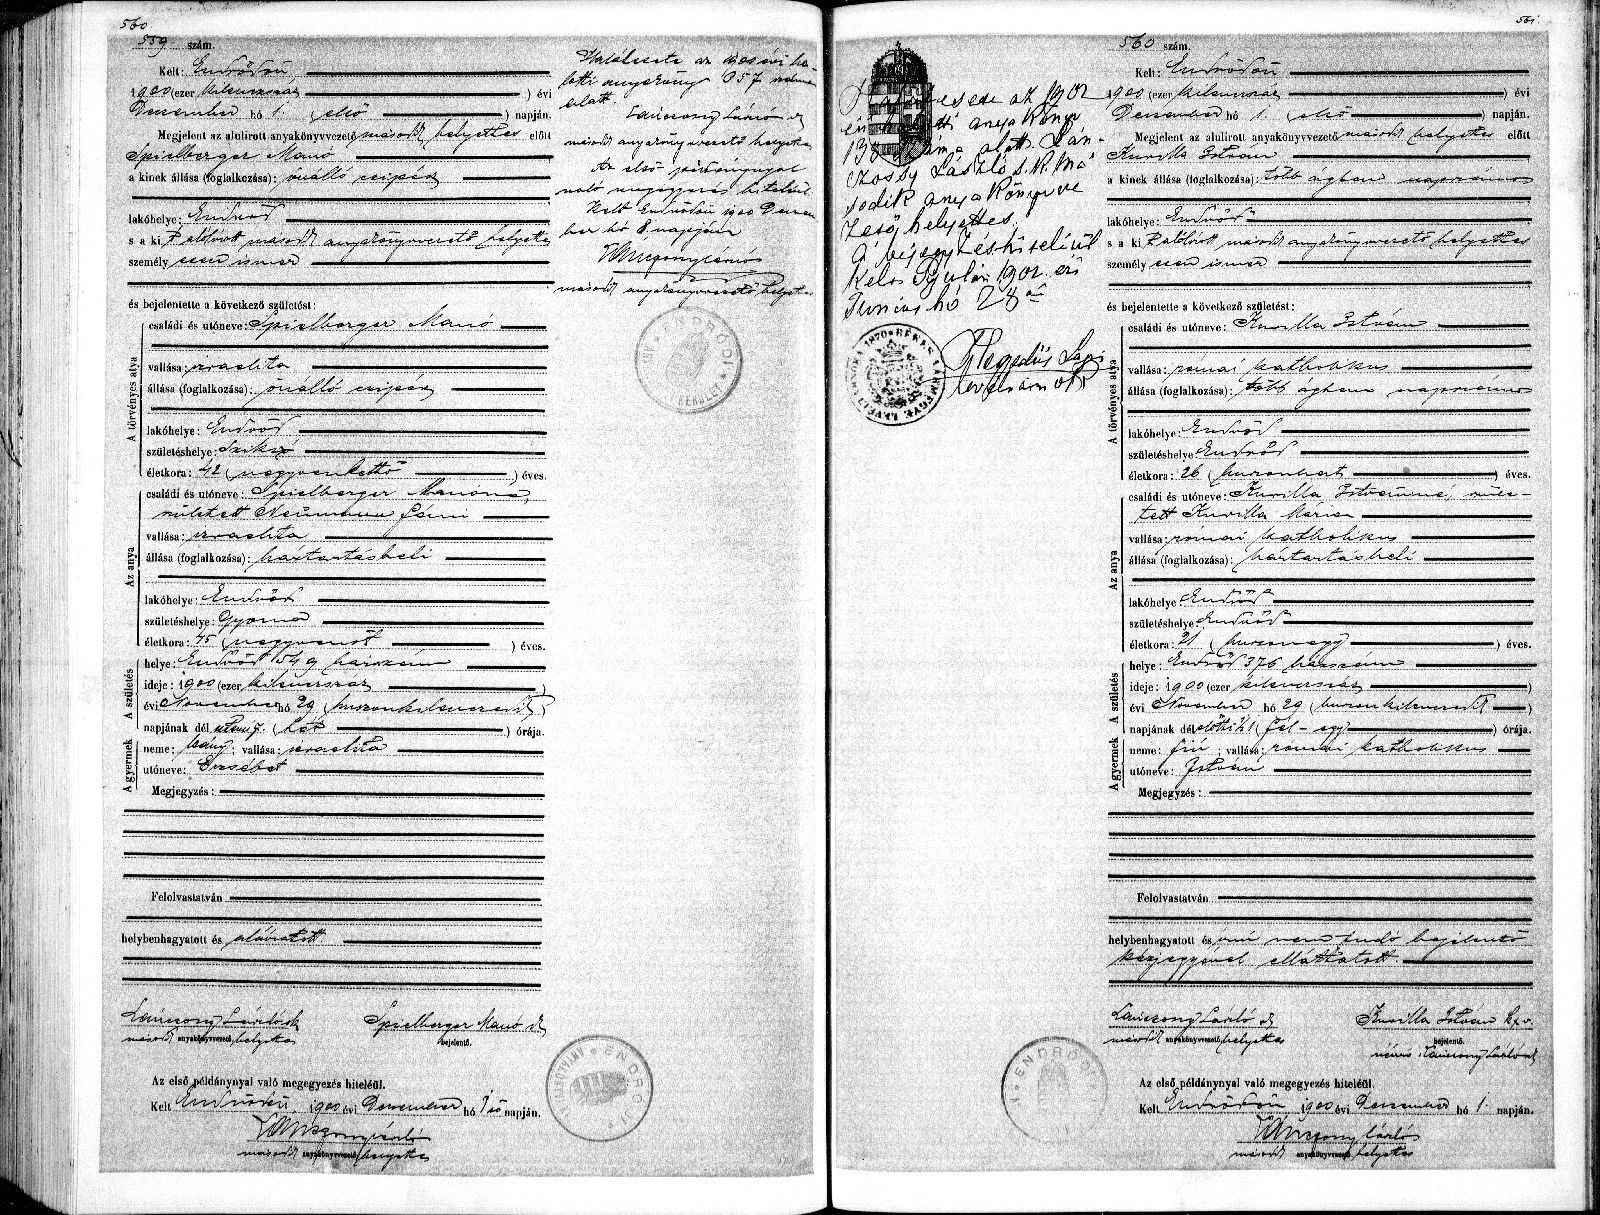 560
559 szám.
Kelt: Endrődön,
1900 (ezer kilencszáz ) évi
December hó 1. (első ) napján.
Megjelent az alulirott anyakönyvvezető másodk helyettes előtt
Spielberger Manó
a kinek állása (foglalkozása): önálló czipész
lakóhelye: Endrőd
s a ki alólirott másodk anyakönyvvezető helyettes
személyesen ismer
és bejelentette a következő születést:
A törvényes atya
családi és utóneve: Spielberger Manó
vallása: izraelita
állása (foglalkozása): önálló czipész
lakóhelye: Endrőd
születéshelye: Szikszó
életkora: 42 (negyvenkettő ) éves.
Az anya
családi és utóneve: Spielberger Manóné,
született Neumann Fáni
vallása: izraelita
állása (foglalkozása): háztartásbeli
lakóhelye: Endrőd
születéshelye: Gyoma
életkora: 45 (negyvenöt ) éves.
A születés
helye: Endrőd 549 házszám
ideje: 1900 (ezer kilencszáz )
évi November hó 29 (huszonkilenczedik)
napjának dél után 7. (hét ) órája.
A gyermek
neme: leány; vallása: izraelita
utóneve: Erzsébet
Megjegyzés:
Felolvastatván
helybenhagyatott és aláiratott
Lánczony László sk
másodk anyakönyvvezető helyettes
Spielberger Manó sk
bejelentő.
Az első példánynyal való megegyezés hiteléül.
Kelt Endrődön, 1900 évi December hó 1 ső napján.
Lánczony László
másodk anyakönyvvezető helyettes
Halálesete az 1900 évi ha-
lotti anyakönyv 357 száma
alatt
Lánczony László sk
másodk anyakönyvvezető helyettes
Az első példánynyal
való megegyezés hiteléül
Kelt Endrődön 1900 Decem
ber hó 8 napján
Lánczony László
másodk anyakönyvvezető helyettes
561
Halálesete az 1902
évi halotti anyakönyv
alatt. Lán-
czossy László s.k. má
sodik anyakönyvve
zető helyettes.
A bejegyzés hiteléül
Kelt Gyulán 1902. évi
Junius hó 28 án
Hegedüs
levéltárnok
BÉKÉS VÁRMEGYE LEVÉLTÁRNOKA 1870
560 szám.
Kelt: Endrődön
1900 (ezer kilencszáz ) évi
December hó 1. (első ) napján.
Megjelent az alulirott anyakönyvvezető másodk helyettes előtt
Kurilla István
a kinek állása (foglalkozása): több ágban napszámos
lakóhelye: Endrőd
s a ki alólirott másodk anyakönyvvezető helyettes
személyesen ismer
és bejelentette a következő születést:
A törvényes atya
családi és utóneve: Kurilla István
vallása: római katholikus
állása (foglalkozása): több ágban napszámos
lakóhelye: Endrőd
születéshelye Endrőd
életkora: 26 (huszonhat ) éves.
Az anya
családi és utóneve: Kurilla Istvánné, szüle-
tett Kurilla Mária
vallása: római katholikus
állása (foglalkozása): háztartásbeli
lakóhelye: Endrőd
születéshelye Endrőd
életkora: 21 (huszonegy ) éves.
A születés
helye: Endrőd 376 házszám
ideje: 1900 (ezer kilencszáz )
évi November hó 29 (huszonkilenczedik )
napjának dél előtti ½1 (fél - egy ) órája.
A gyermek
neme: fiú; vallása: római katholikus
utóneve: István
Megjegyzés:
Felolvastatván
helybenhagyatott és irni nem tudó bejelentő
kézjegyével elláttatott.
Lánczony László sk
másodk anyakönyvvezető helyettes
Kurilla István k.x.v.
bejelentő.
névíró Lánczony László sk
Az első példánynyal való megegyezés hiteléül.
Kelt Endrődön 1900 évi December hó 1. napján.
Lánczony László
másodk anyakönyvvezető helyettes